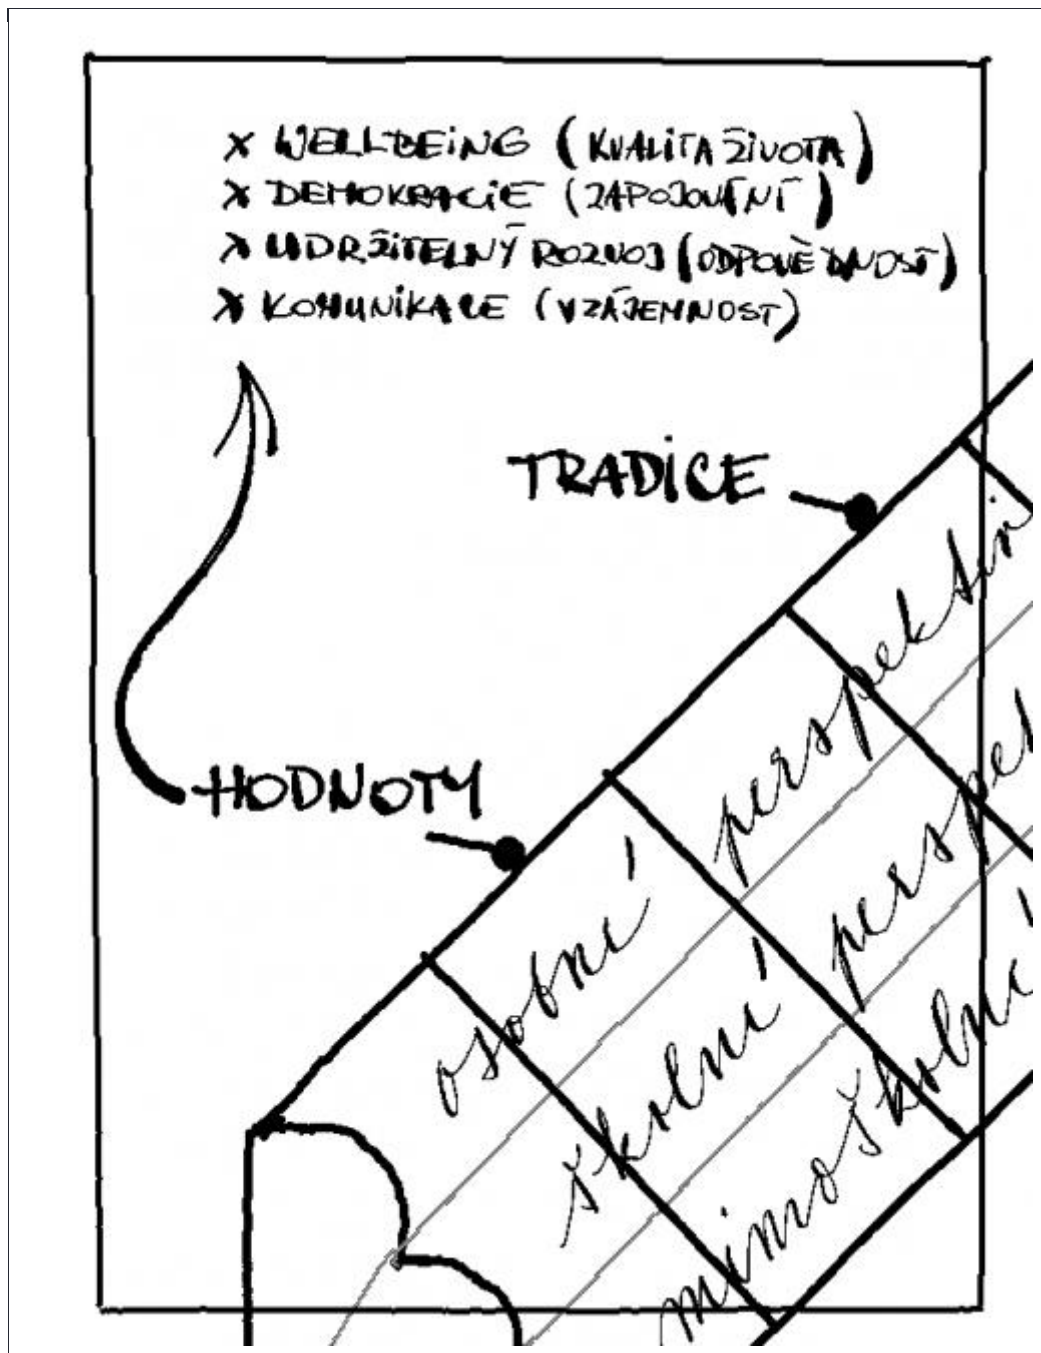 × WELLBEING (KVALITA ŽIVOTA)
× DEMOKRACIE (ZAPOJOVÁNÍ)
× UDRŽITELNÝ ROZVOJ (ODPOVĚDNOST)
× KOMUNIKACE (VZÁJEMNOST)
TRADICE
HODNOTY
osobní perspektiv
školní perspe
mimoškolní